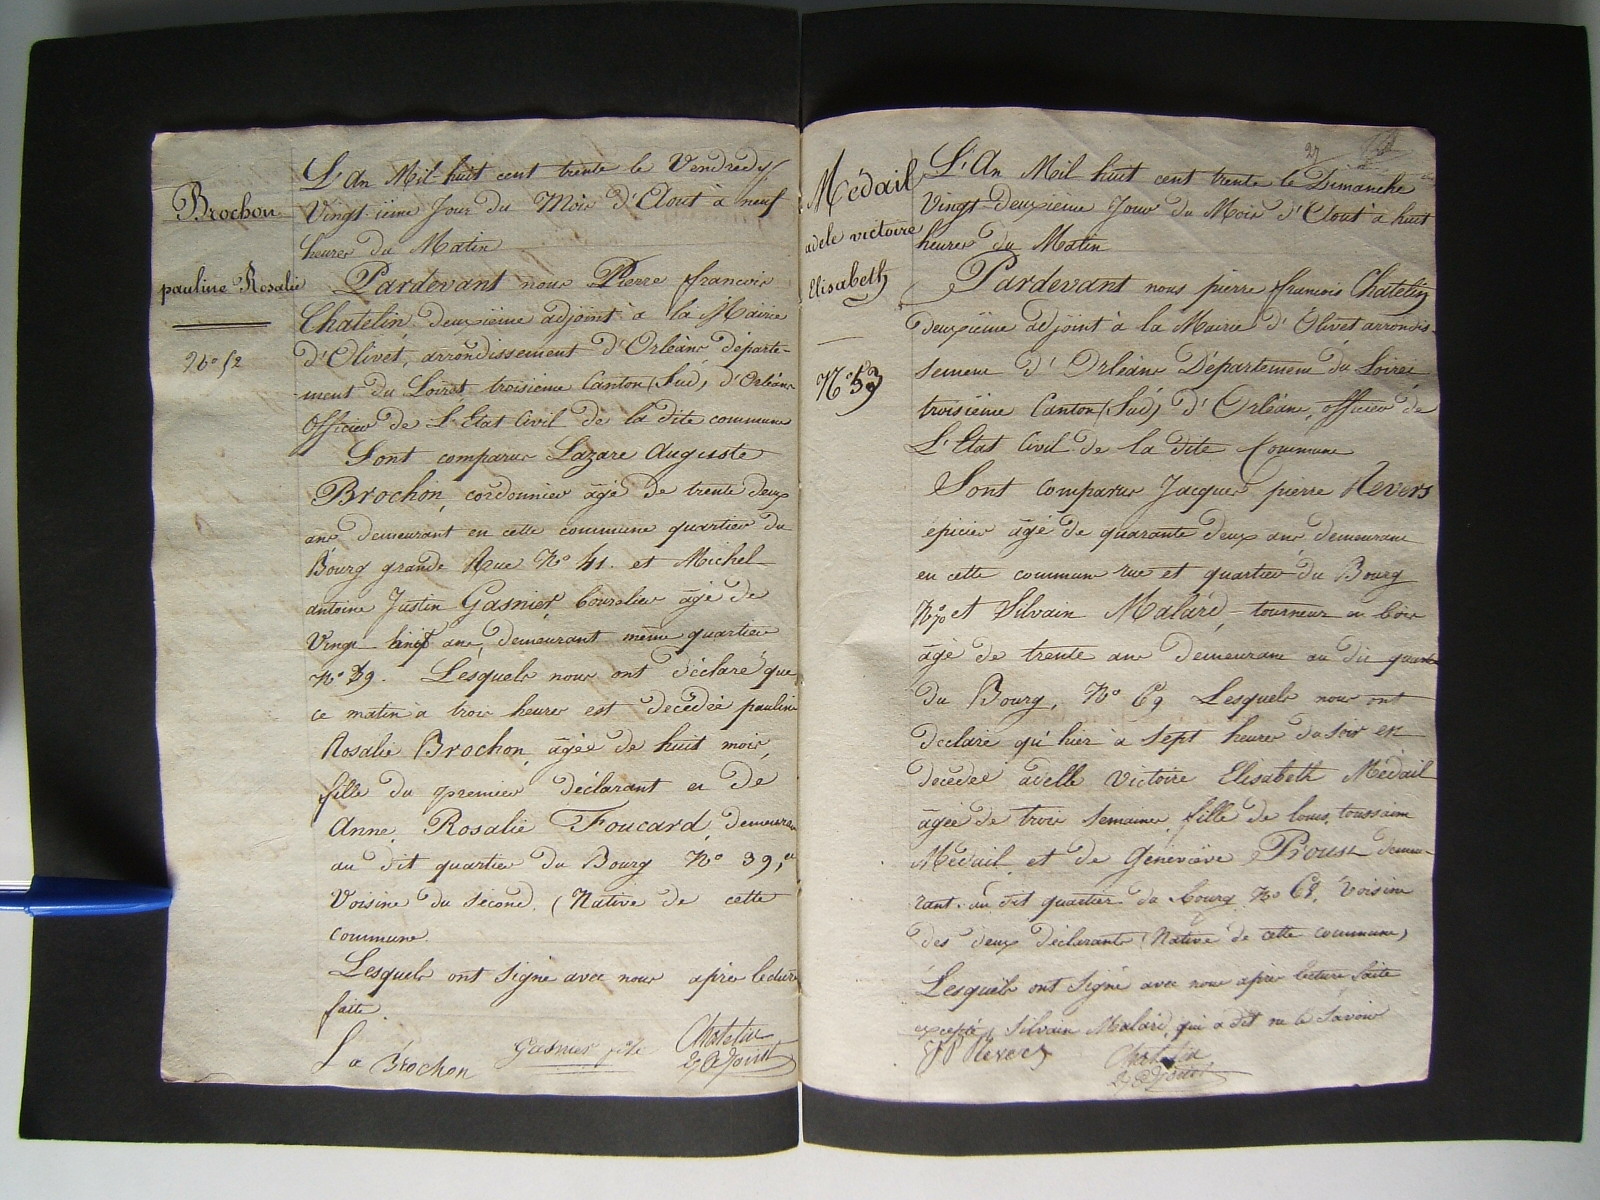 Brochon
pauline Rosalie
No 52
L'An Mil huit cent trente le Vendredy
Vingt ieme Jour du Mois d'Aout à neuf
heures du Matin
Pardevant nous Pierre francois
Chatelin deuxiéme adjoint à la Mairie
d'Olivet, arrondissement d'Orléans départe-
ment du Loiret troisieme Canton (Sud) d'Orléans
Officier de L'Etat Civil de la dite commune
Sont comparus Lazare Auguste
Brochon, cordonnier âgé de trente deux
ans demeurant en cette commune quartier du
Bourg grande Rue No 41. et Michel
antoine Justin Gasnier bourelier âgé de
Vingt ans, demeurant même quartier
No 39. Lesquels nous ont déclaré que
ce matin à trois heures est décédée pauline
Rosalie Brochon, âgée de huit mois,
fille du premier déclarant et de
Anne Rosalie Foucard, demeurant
au dit quartier du Bourg No 39, et
Voisine du second. (Native de cette
commune.
Lesquels ont signé avec nous après lecture
faite.
L a Brochon Gasnier Chatelin
2e adjoint
27
Médail
adele victoire
Elisabeth
No 53
L'An Mil huit cent trente le Dimanche
Vingt-deuxieme Jour du Mois d'Aout à huit
heures du Matin
Pardevant nous pierre francois Chatelin
deuxiéme adjoint à la Mairie d'Olivet arrondis-
sement d'Orléans Département du Loiret
troisiéme Canton (Sud) d'Orléans, officier de
L'Etat Civil de la dite Commune
Sont Comparus Jacques pierre Nevers
epicier âgé de quarante deux ans demeurant
en cette commun rue et quartier du Bourg
No 70 et Silvain Malard, tourneur en bois
âgé de trente ans demeurant au dit quart
du Bourg, No 69 Lesquels nous ont
declaré qu'hier à sept heures du soir est
décédée adelle victoire Elisabeth Médail
âgée de trois semaines, fille de louis, toussaint
Médail et de Généviéve Proust demeu-
rant au dit quartier du bourg No 68, Voisine
des deux déclarants (Native de cette commune)
Lesquels ont signé avec nous après lecture faite
excepté, Silvain Malard, qui a dit ne le savoir
J P Nevers Chatelin
2e adjoint